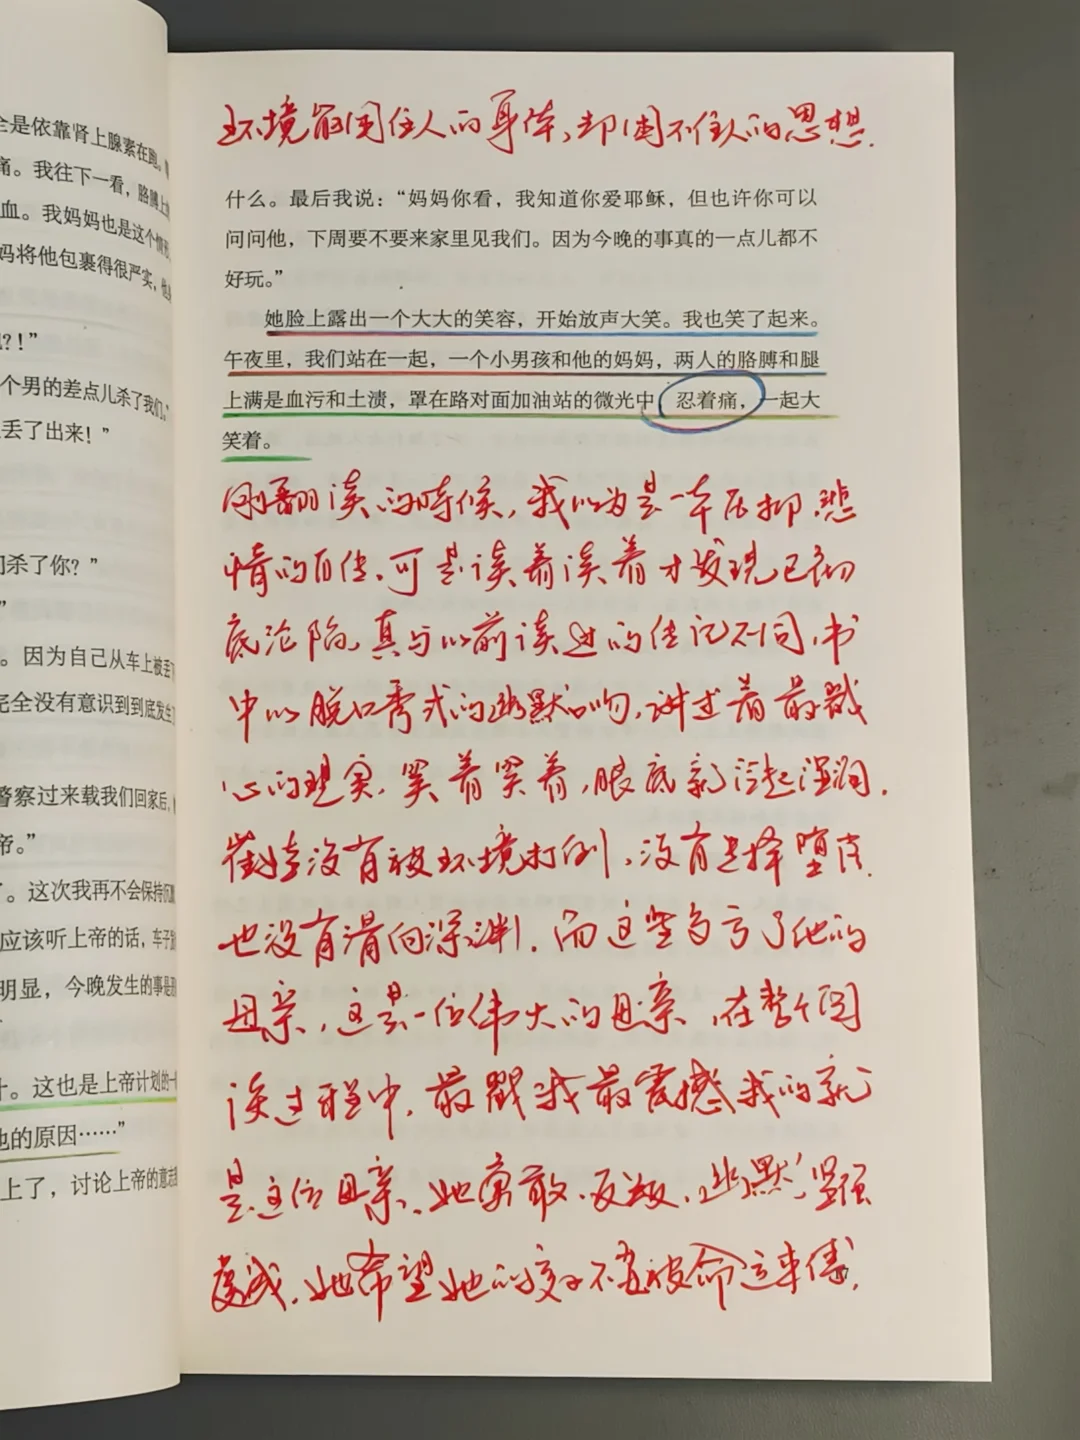 全是依靠肾上腺素在跑。
痛。我往下一看，胳膊上
血。我妈妈也是这个情形，
妈将他包裹得很严实，他
？！”
个男的差点儿杀了我们。”
丢了出来！”
杀了你？”
”
。因为自己从车上被丢
完全没有意识到到底发生
警察过来载我们回家后，
帝。”
了。这次我再不会保持沉默
应该听上帝的话，车子
明显，今晚发生的事是
。这也是上帝计划的一
他的原因……”
上了，讨论上帝的意志
环境能困住人的身体，却困不住人的思想.
什么。最后我说：“妈妈你看，我知道你爱耶稣，但也许你可以
问问他，下周要不要来家里见我们。因为今晚的事真的一点儿都不
好玩。”
她脸上露出一个大大的笑容，开始放声大笑。我也笑了起来。
午夜里，我们站在一起，一个小男孩和他的妈妈，两人的胳膊和腿
上满是血污和土渍，罩在路对面加油站的微光中，忍着痛，一起大
笑着。
刚翻读的时候，我以为是一本压抑，悲
情的自传，可是读着读着才发现已彻
底沦陷，真与以前读过的传记不同，书
中以脱口秀式的幽默口吻，讲述着最戳
心的现实，笑着笑着，眼底就泛起湿润.
崔娃没有被环境打倒，没有选择堕落
也没有滑向深渊，而这些多亏了他的
母亲，这是一位伟大的母亲，在整个阅
读过程中，最戳我最震撼我的就
是这位母亲，她勇敢、反叛、幽默、坚强
虔诚，她希望她的孩子不为被命运束缚，